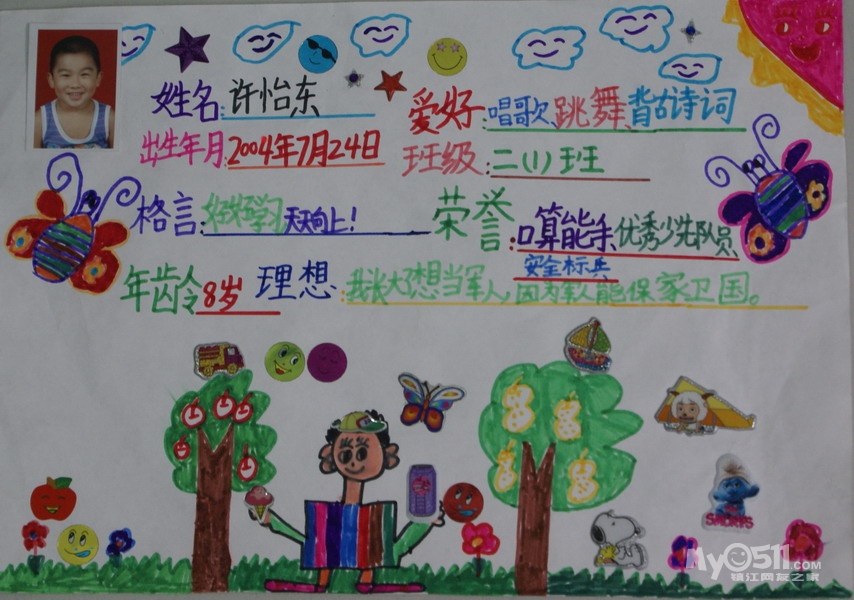 姓名:许怡东 爱好:唱歌、跳舞、背古诗词
出生年月:2004年7月24日 班级:二(1)班
格言:好好学习天天向上! 荣誉:口算能手、优秀少先队员、
安全标兵
年龄8岁 理想:我长大想当军人,因为军人能保家卫国。
SMURFS
My0511.com
镇江网友之家